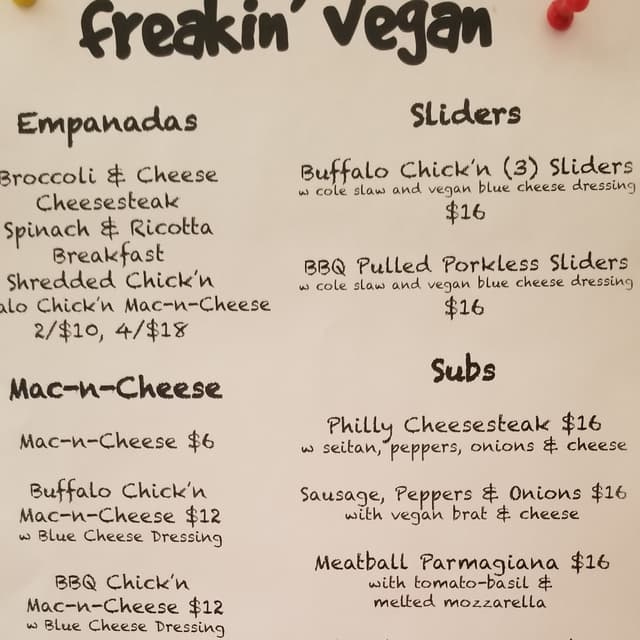 freakin' vegan
Empanadas
Broccoli & Cheese
Cheesesteak
Spinach & Ricotta
Breakfast
Shredded Chick'n
alo Chick'n Mac-n-Cheese
2/$10, 4/$18
Mac-n-Cheese
Mac-n-Cheese $6
Buffalo Chick'n
Mac-n-Cheese $12
w Blue Cheese Dressing
BBQ Chick'n
Mac-n-Cheese $12
w Blue Cheese Dressing
Sliders
Buffalo Chick'n (3) Sliders
w cole slaw and vegan blue cheese dressing
$16
BBQ Pulled Porkless Sliders
w cole slaw and vegan blue cheese dressing
$16
Subs
Philly Cheesesteak $16
w seitan, peppers, onions & cheese
Sausage, Peppers & Onions $16
with vegan brat & cheese
Meatball Parmagiana $16
with tomato-basil &
melted mozzarella